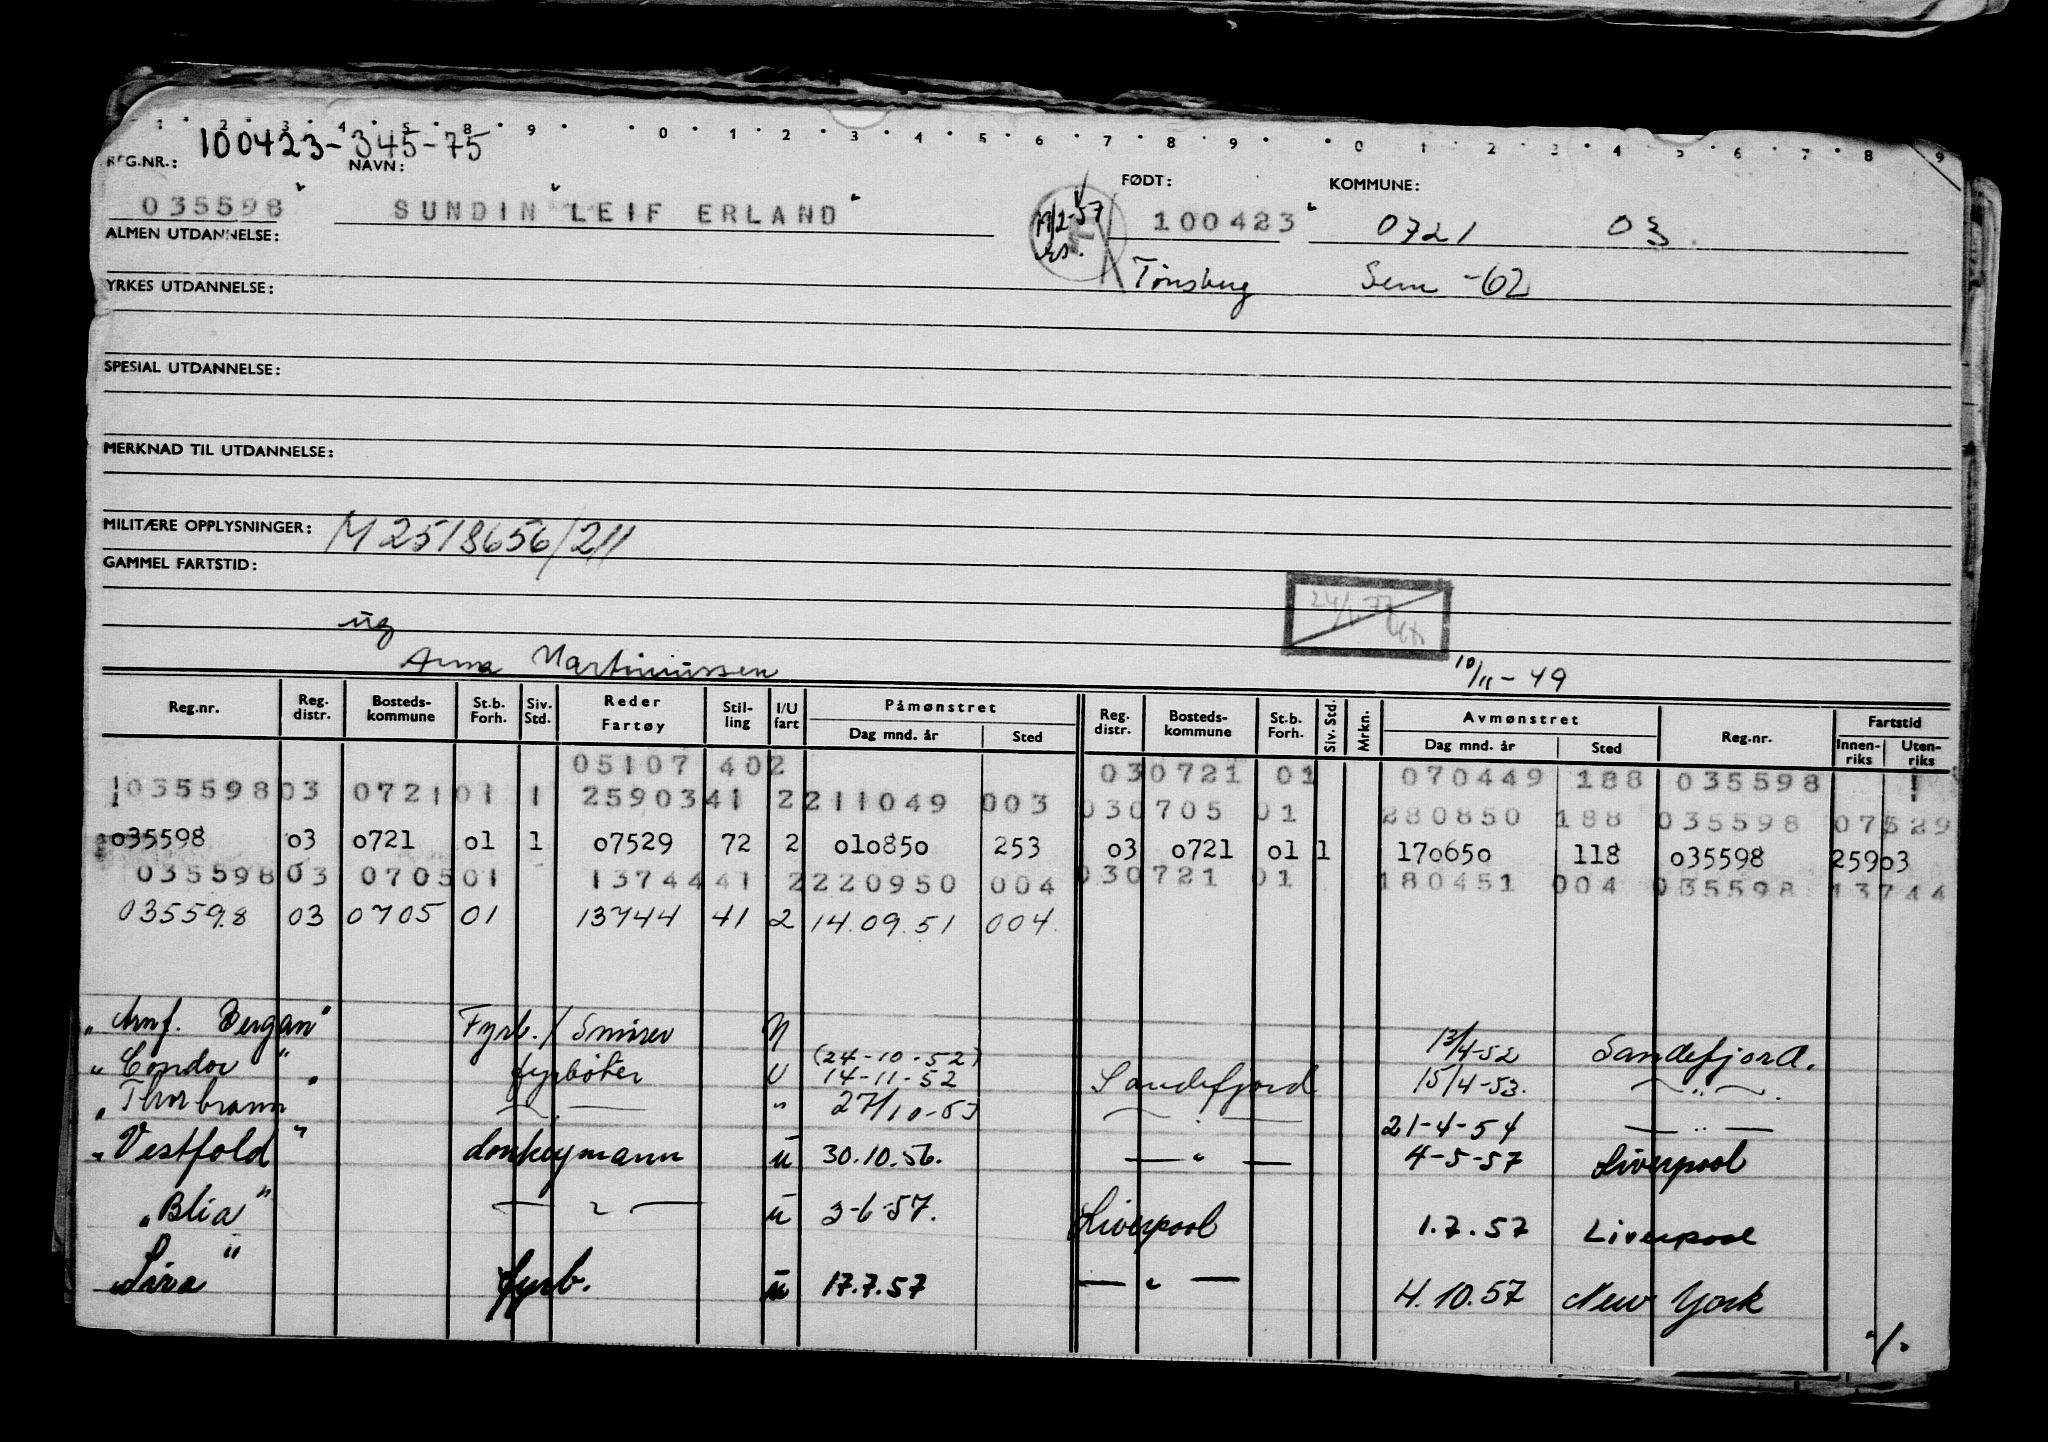 1 2 3 4 5 8 9 0 1 2 3 4 5 6 7 8 9 0 1 2 3 4 5 6 7 8 9
100423-345-75
REG.NR.: NAVN: FØDT: KOMMUNE:
035598 SUNDIN LEIF ERLAND 100423 0721 03
ALMEN UTDANNELSE:
Tønsberg Sem -62
YRKES UTDANNELSE:
SPESIAL UTDANNELSE:
MERKNAD TIL UTDANNELSE:
MILITÆRE OPPLYSNINGER: M 2518656/211
GAMMEL FARTSTID:
ug
Anna Martinussen 10/11-49
Reg.nr. Reg. distr. Bosteds-kommune St.b. Forh. Siv. Std. Reder Fartøy Stil-ling I/U fart Påmønstret Dag mnd. år Sted Reg. distr. Bosteds-kommune St.b. Forh. Siv. Std. Mrkn. Avmønstret Dag mnd. år Sted Reg.nr. Fartstid Innen-riks Uten-riks
05107 402 030721 01 070449 188 035598
035598 03 0721 01 1 25903 41 2 211049 003 030705 01 280850 188 035598 07529
035598 03 0721 01 1 07529 72 2 010850 253 03 0721 01 1 170650 118 035598 25903
035598 03 0705 01 13744 41 2 220950 004 030721 01 180451 004 035598 13744
035598 03 0705 01 13744 41 2 14.09.51 004.
"Arnf. Bergan" Fyrb./Smører N 13/4-52 Sandefjord.
"Condor" fyrbøter U (24-10-52) 14-11-52 Sandefjord 15/4-53. — " —
"Thorbrann" — " — " 27/10-53 — " — 21-4-54 — " —
"Vestfold" donkeymann u 30.10.56. — " — 4-5-57 Liverpool
"Blia" — " — u 3-6-57. Liverpool 1.7.57 Liverpool
"Lira" fyrb. u 17.7.57 — " — 4.10.57 New York
./.